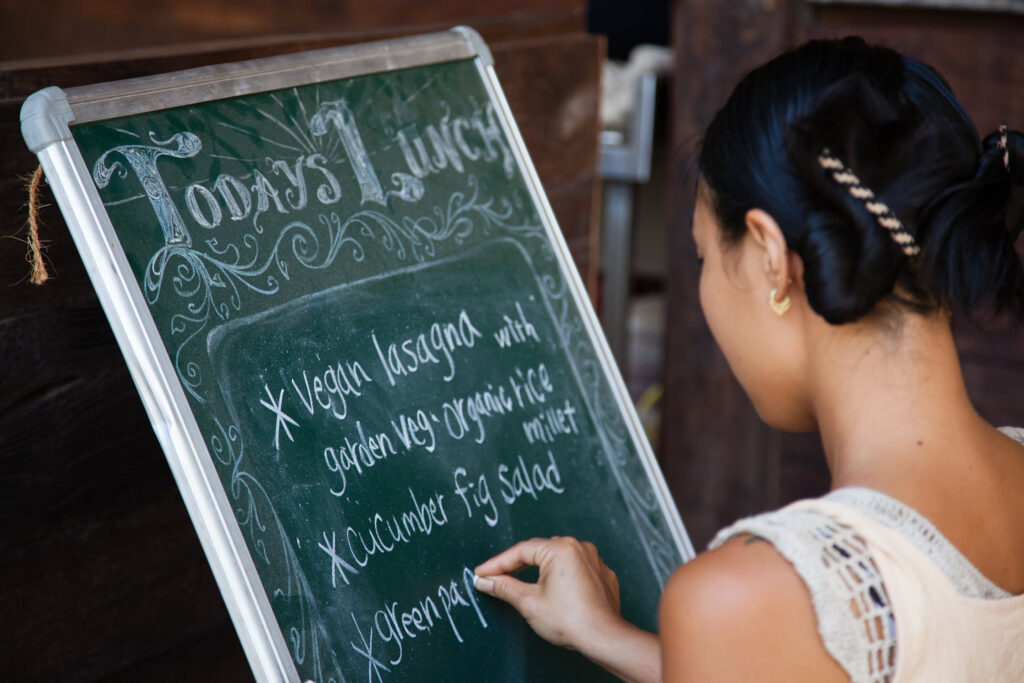 Todays Lunch
* Vegan lasagna with
garden veg. organic rice
millet
* cucumber fig salad
* green pap